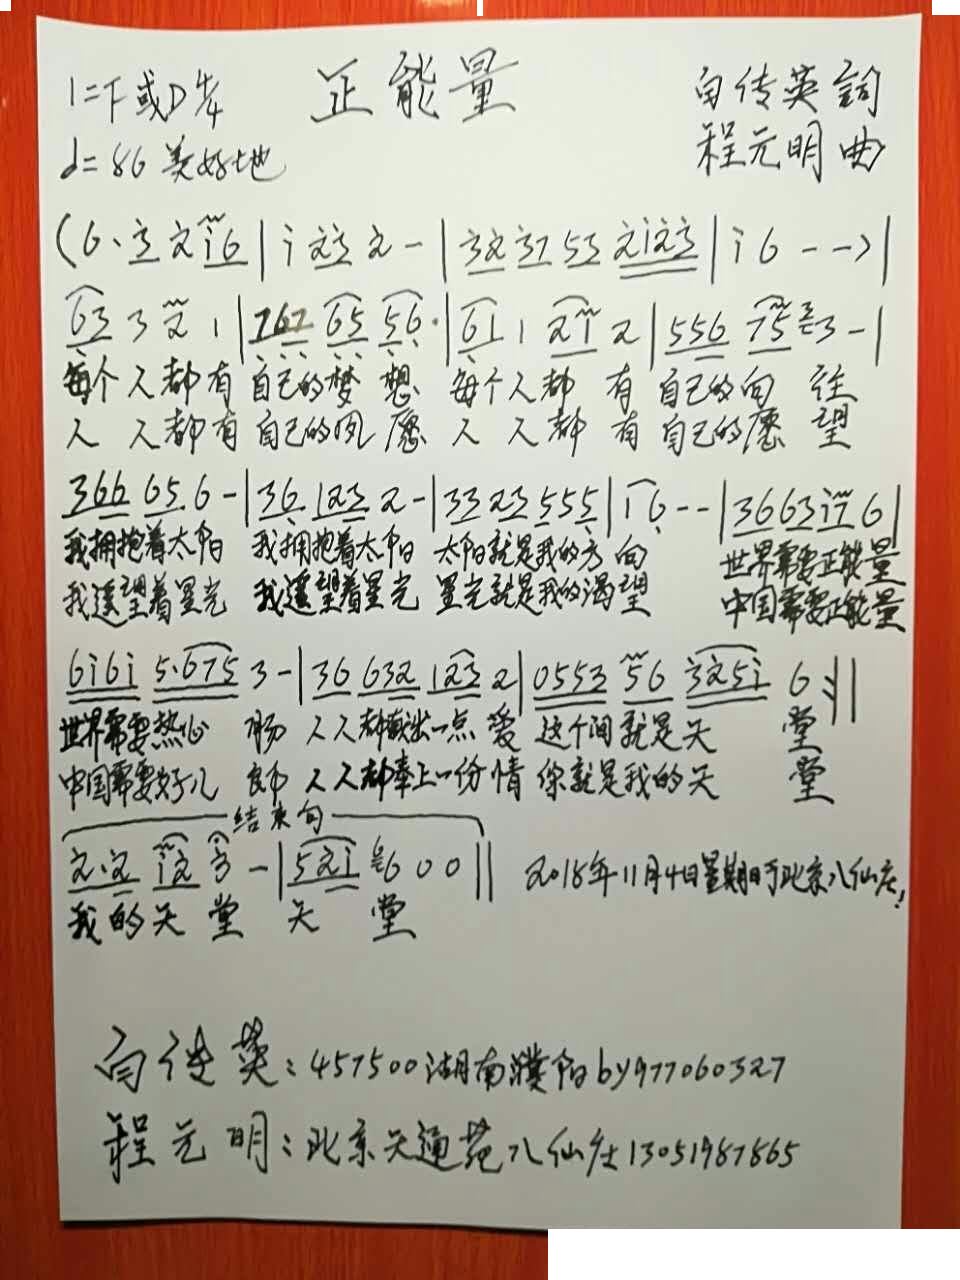 正能量
1=F或D 4/4
白传英 詞
♩=86 美好地
程元明 曲
(6· 3 2 i6 | i 23 2 - | 32 37 53 2123 | i 6 - -) |
63 3 2 1 | 767 65 56· | 61 1 21 2 | 556 75 3 - |
每个人都有 自己的梦想 每个人都有 自己的向往
人人都有 自己的夙愿 人人都有 自己的愿望
366 656 - | 36 123 2 - | 33 23 555 | 16 - - | 3663 i7 6 |
我拥抱着太阳 我拥抱着太阳 太阳就是我的方向 世界需要正能量
我遥望着星光 我遥望着星光 星光就是我的渴望 中国需要正能量
6i6i 5·675 3 - | 36 632 123 2 | 0553 56 325i 6 :||
世界需要热心肠 人人都献出一点爱 这个间就是天堂
中国需要好儿郎 人人都奉上一份情 你就是我的天堂
结束句
2·2 i2 3 - | 52i 6 0 0 ||
2018年11月4日星期日于北京八仙庄!
我的天堂 天堂
白传英:457500湖南濮阳by977060327
程元明:北京天通苑八仙庄13051987865